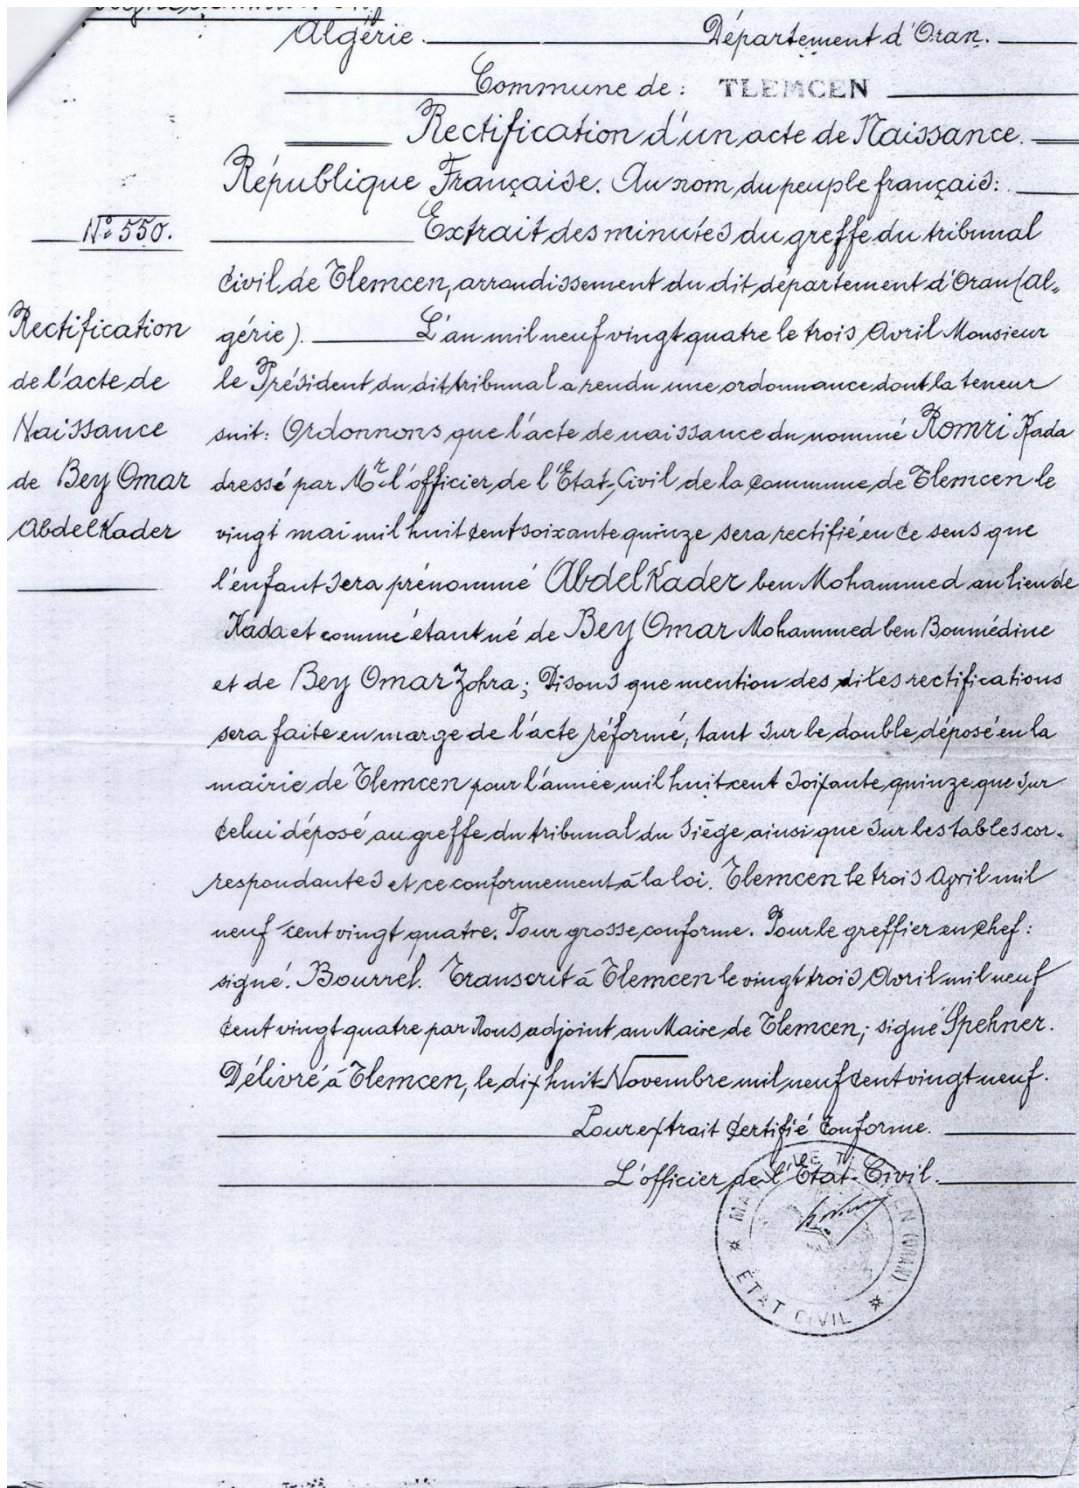 Algérie. Département d'Oran.
Commune de : TLEMCEN
Rectification d'un acte de Naissance.
République Française. Au nom du peuple français:
N° 550.
Extrait des minutes du greffe du tribunal
Civil de Tlemcen, arrondissement du dit département d'Oran (Al-
gérie). L'an mil neuf vingt quatre le trois Avril Monsieur
le Président du dit tribunal a rendu une ordonnance dont la teneur
suit: Ordonnons que l'acte de naissance du nommé Romri Kada
dressé par Mr l'officier de l'État-Civil de la commune de Tlemcen le
vingt mai mil huit cent soixante quinze sera rectifié en ce sens que
l'enfant sera prénommé AbdelKader ben Mohammed au lieu de
Kada et comme étant né de Bey Omar Mohammed ben Boumédine
et de Bey Omar Zohra; Disons que mention des dites rectifications
sera faite en marge de l'acte réformé, tant sur le double déposé en la
mairie de Tlemcen pour l'année mil huit cent soixante quinze que sur
celui déposé au greffe du tribunal du siège ainsi que sur les tables cor-
respondantes et ce conformement à la loi. Tlemcen le trois April mil
neuf cent vingt quatre. Pour grosse conforme. Pour le greffier en chef:
signé. Bourrel. Transcrit à Tlemcen le vingt trois Avril mil neuf
cent vingt quatre par Nous adjoint au Maire de Tlemcen; signé Spehner.
Délivré à Tlemcen, le dix huit Novembre mil neuf cent vingt neuf.
Pour extrait Certifié Conforme.
L'officier de l'État-Civil.
Rectification
de l'acte de
Naissance
de Bey Omar
AbdelKader
ÉTAT CIVIL